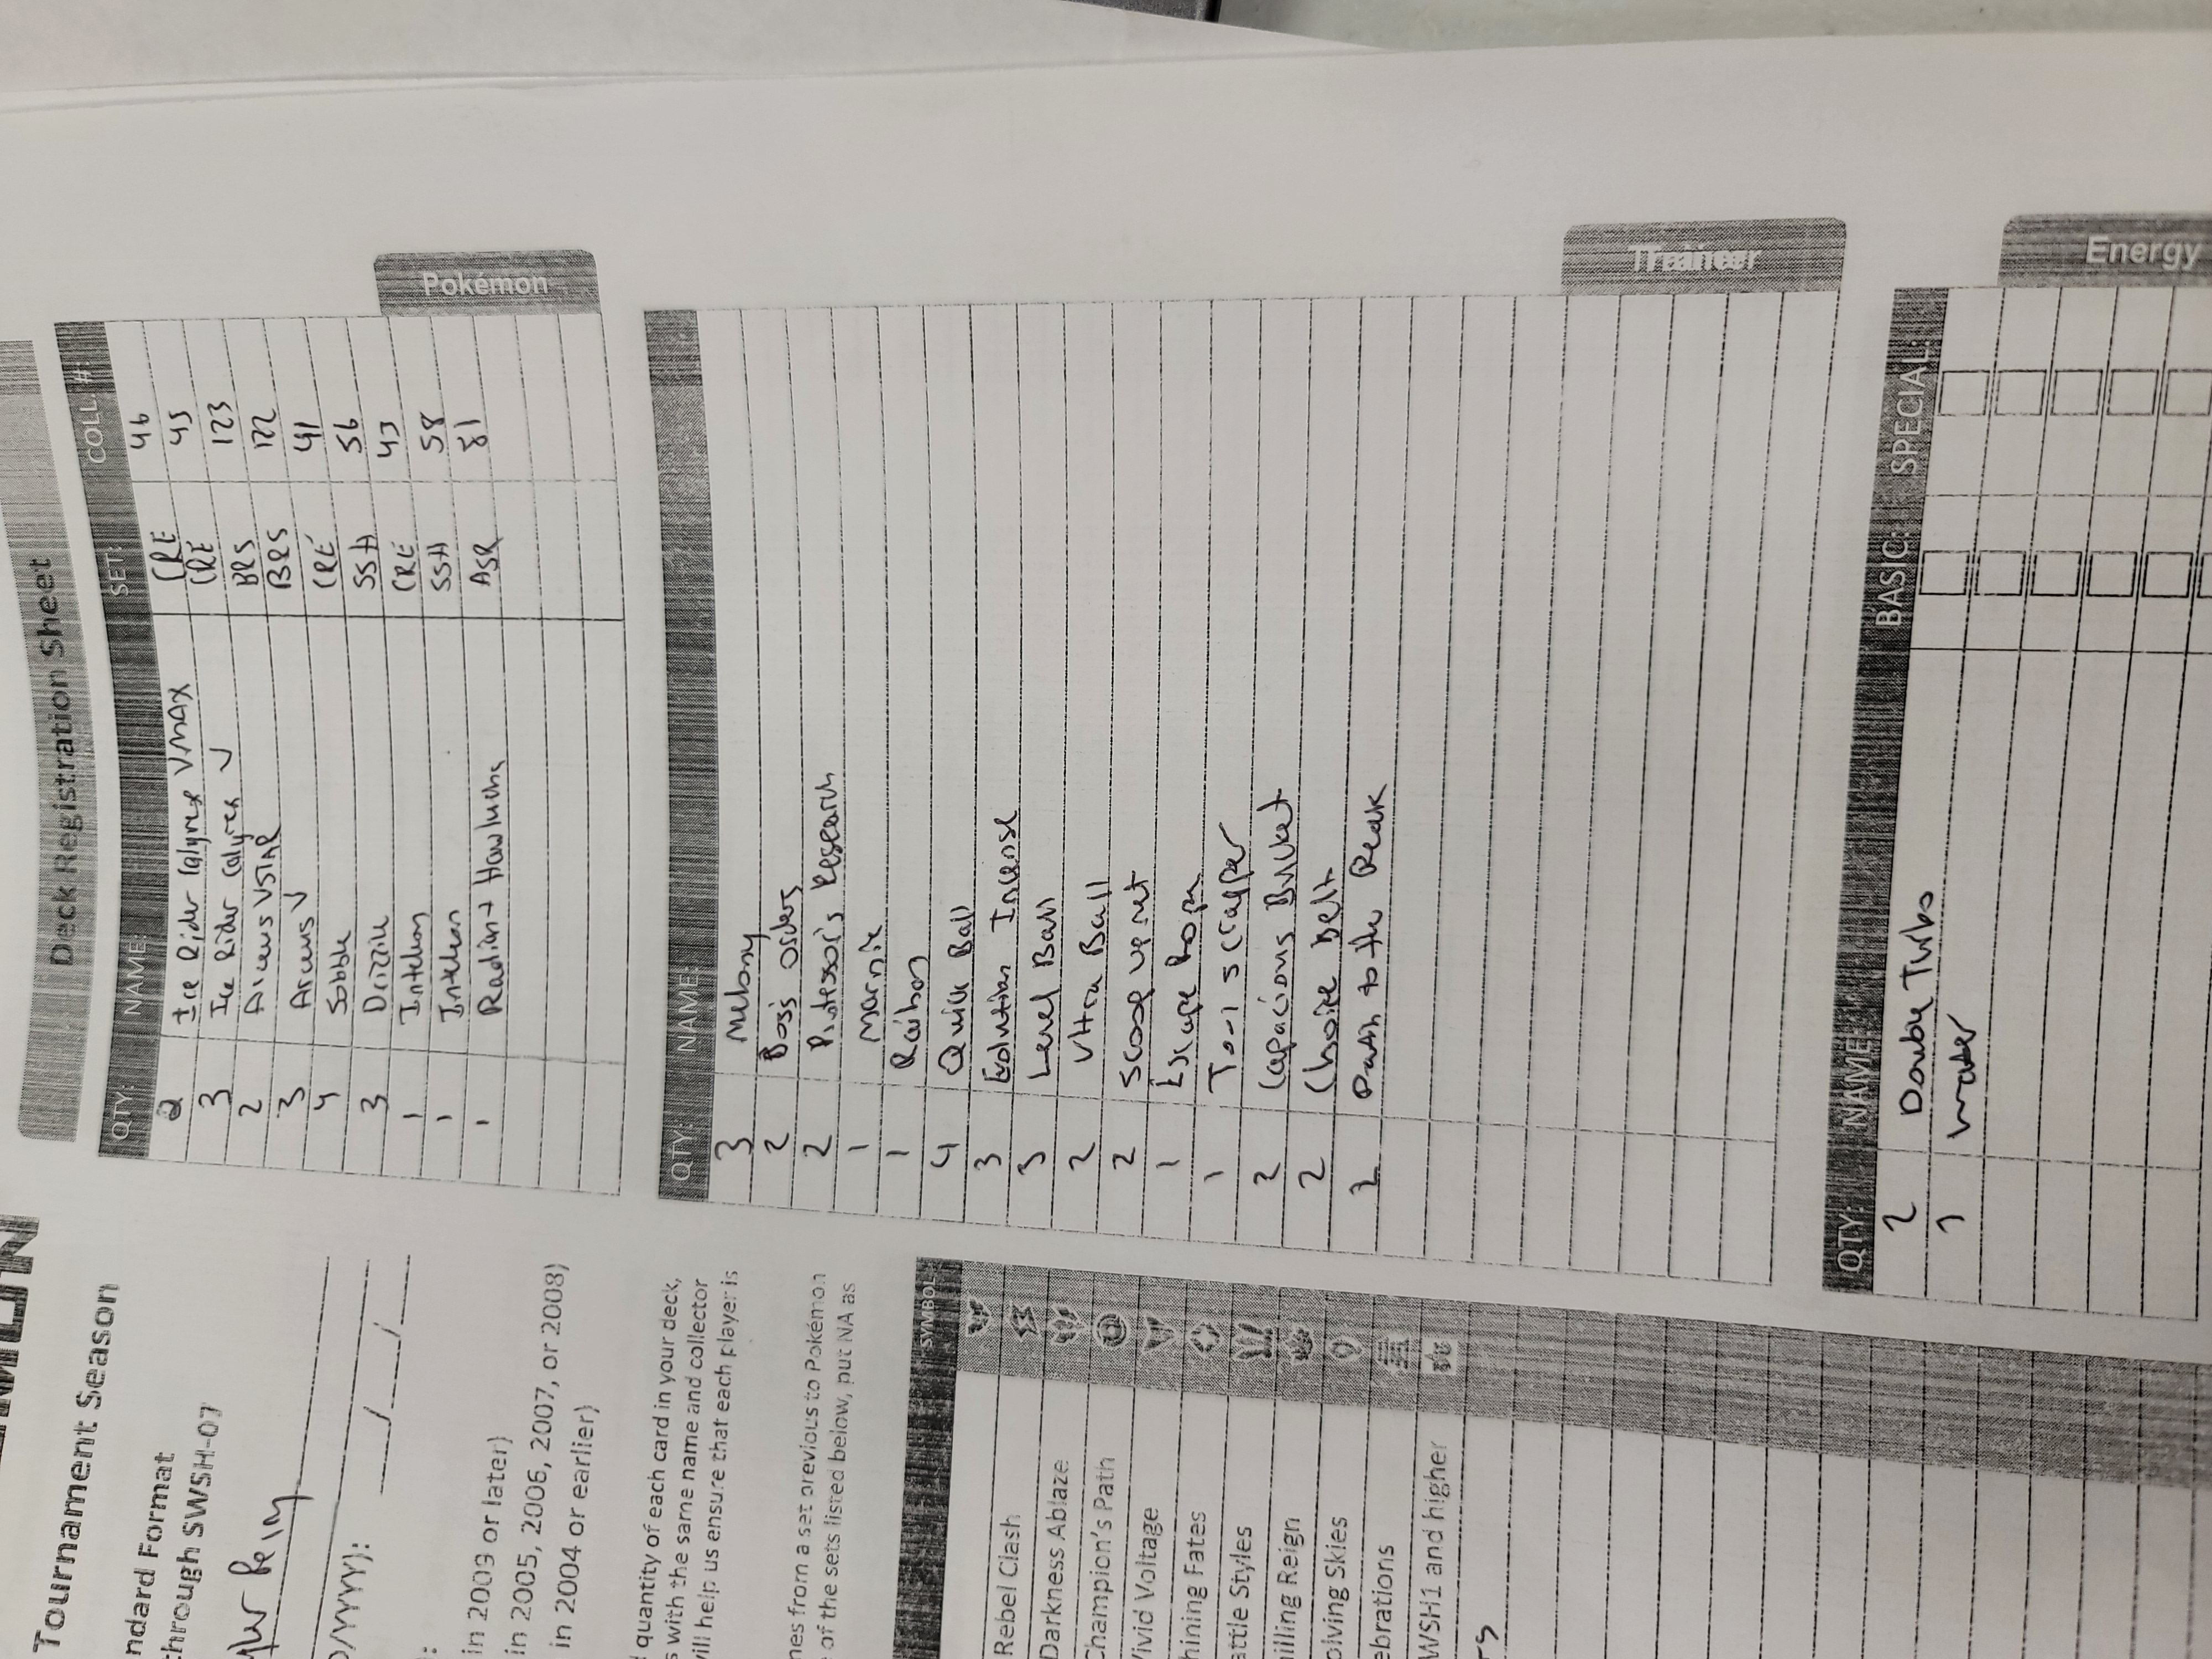 Tournament Season
ndard Format
through SWSH-07
D/YYYY): __/__/__
:
in 2009 or later)
in 2005, 2006, 2007, or 2008)
in 2004 or earlier)
quantity of each card in your deck,
s with the same name and collector
will help us ensure that each player is
mes from a set previous to Pokémon
of the sets listed below, put NA as
SYMBOL
Rebel Clash
Darkness Ablaze
Champion's Path
Vivid Voltage
hining Fates
attle Styles
hilling Reign
olving Skies
ebrations
WSH1 and higher
rs
Deck Registration Sheet
QTY: NAME: SET: COLL. #:
2 Ice Rider Calyrex VMAX CRE 46
3 Ice Rider Calyrex V CRE 45
2 Arceus VSTAR BRS 123
3 Arceus V BRS 122
4 Sobble CRE 41
3 Drizzile SSH 56
1 Inteleon CRE 43
1 Inteleon SSH 58
1 Radiant Hawlucha ASR 81
Pokémon
QTY: NAME:
3 Melony
2 Boss's Orders
2 Professor's Research
1 Marnie
1 Raihan
4 Quick Ball
3 Evolution Incense
3 Level Ball
2 Ultra Ball
2 Scoop up net
1 Escape Rope
1 Tool scrapper
2 Capacious Bucket
2 Choice Belt
2 Path to the Peak
Trainer
QTY: NAME: BASIC: SPECIAL:
2 Double Turbo
Water
Energy